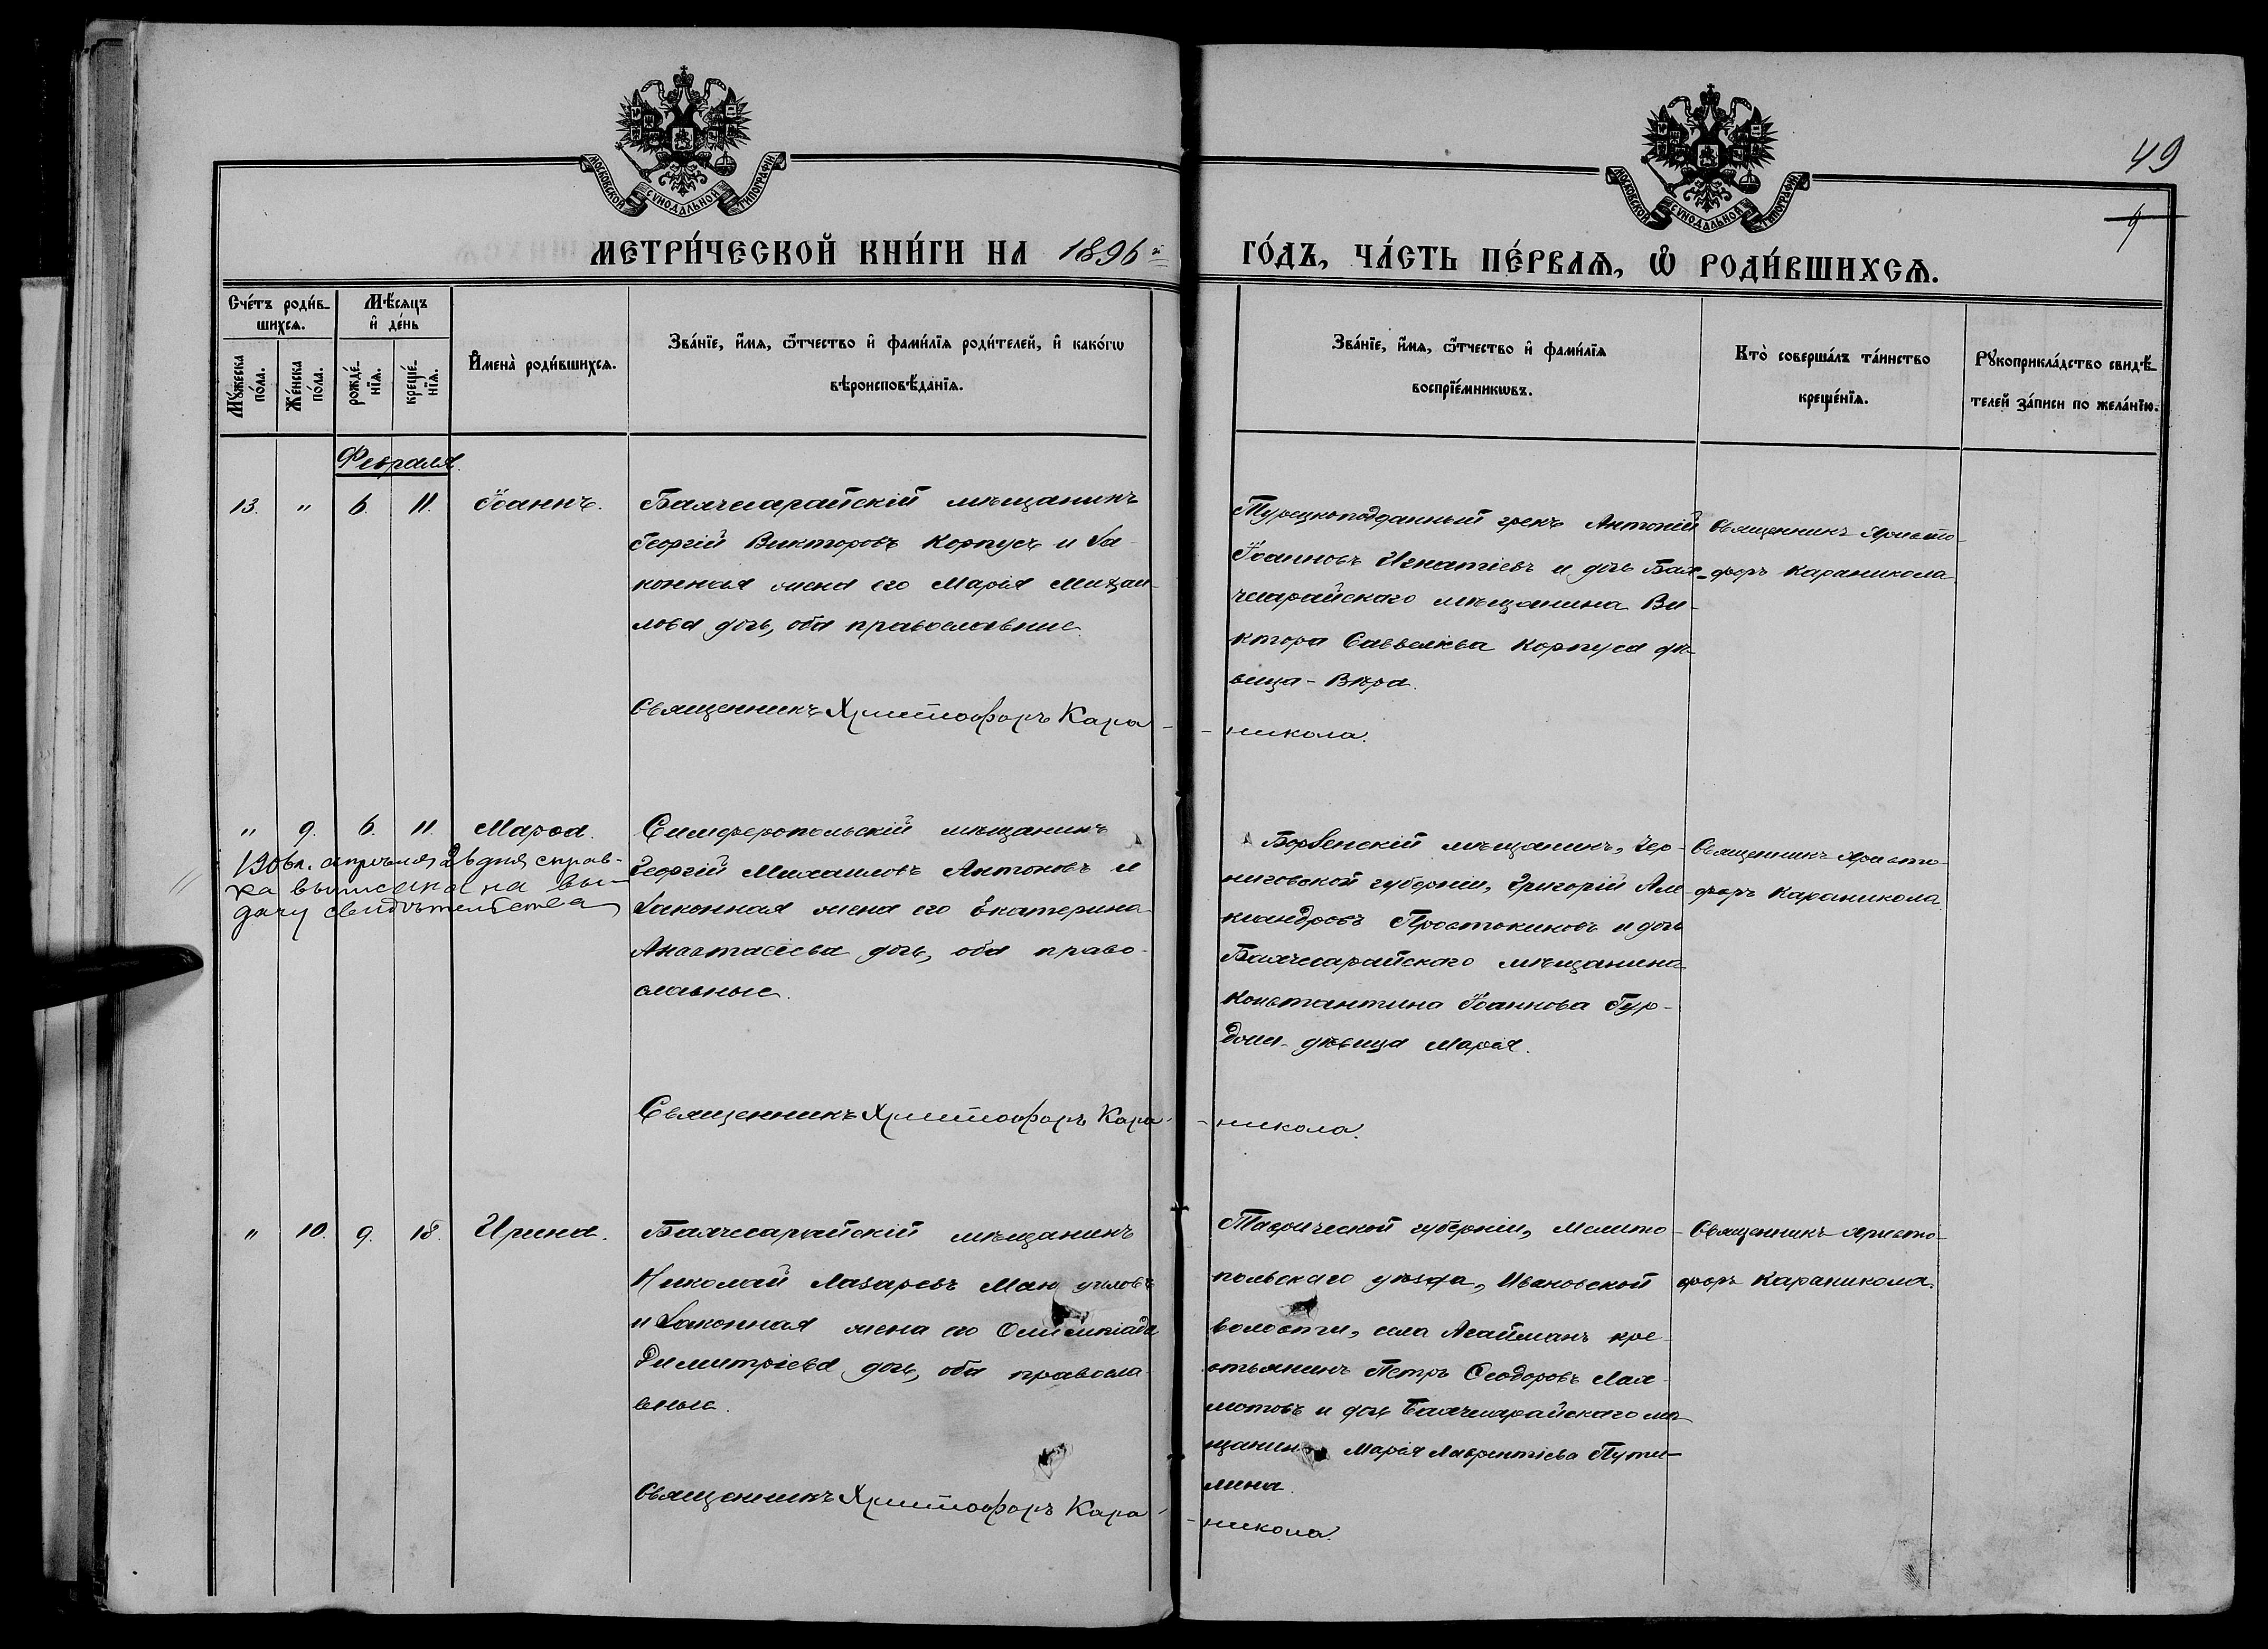 МОСКОВСКОЙ СѴНОДАЛЬНОЙ ТИПОГРАФІИ
МОСКОВСКОЙ СѴНОДАЛЬНОЙ ТИПОГРАФІИ
49
9
МЕТРИ́ЧЕСКОЙ КНИ́ГИ НА 1896й
ГО́ДЪ, ЧА́СТЬ ПЕ́РВАѦ, Ѽ РОДИ́ВШИХСѦ.
Сче́тъ роди́в-
шихсѧ.
Мꙋ́жеска по́ла.
Же́нска по́ла.
Мѣ́сѧцъ
и҆ де́нь
рожде́-нїѧ.
креще́-нїѧ.
И҆мена̀ роди́вшихсѧ.
Зва́нїе, и҆́мѧ, ѻ҆́тчество и҆ фами́лїѧ роди́телей, и҆ како́гѡ
вѣроисповѣ́данїѧ.
Зва́нїе, и҆́мѧ, ѻ҆́тчество и҆ фами́лїѧ
воспрїе́мникѡвъ.
Кто̀ соверша́лъ та́инство
креще́нїѧ.
Рꙋкоприкла́дство свидѣ́-
телей за́писи по жела́нїю.
Февраля.
13. " 6. 11. Іоаннъ.
Бахчисарайскій мѣщанинъ
Георгій Викторовъ Корпусъ и за-
конная жена его Марія Михаи-
лова дочь, оба православные.
Турецкоподданный грекъ Антоній
Іоанновъ Игнатіевъ и дочь Бах-
чисарайскаго мѣщанина Ви-
ктора Савельева Корпуса дѣ-
вица - Вѣра.
Священникъ Христо-
форъ Караникола
Священникъ Христофоръ Кара-
-никола.
" 9. 6. 11. Марѳа.
1906 г. апрѣля 26 дня справ-
ка выписана на вы-
дачу свидѣтельства
Симферопольскій мѣщанинъ
Георгій Михаиловъ Антоновъ и
законная жена его Екатерина
Анастасіева дочь, оба право-
славные.
Борзенскій мѣщанинъ, Чер-
ниговской губерніи, Григорій Але-
ксандровъ Простокиновъ и дочь
Бахчисарайскаго мѣщанина
Константина Іоаннова Гур-
джи - дѣвица Марія.
Священникъ Христо-
форъ Караникола.
Священникъ Христофоръ Кара-
-никола.
" 10. 9. 18. Ирина.
Бахчисарайскій мѣщанинъ
Николай Лазаревъ
и законная жена его Олимпіада
Димитріева дочь, оба правосла-
вные.
Таврической губерніи, Мелито-
польскаго уѣзда, Ивановской
волости, села Агайманъ кре-
стьянинъ Петръ Ѳеодоровъ Лах-
мотовъ и дочь Бахчисарайскаго мѣ-
щанина Марія Лаврентіева Пути-
лина.
Священникъ Христо-
форъ Караникола.
Священникъ Христофоръ Кара-
-никола.